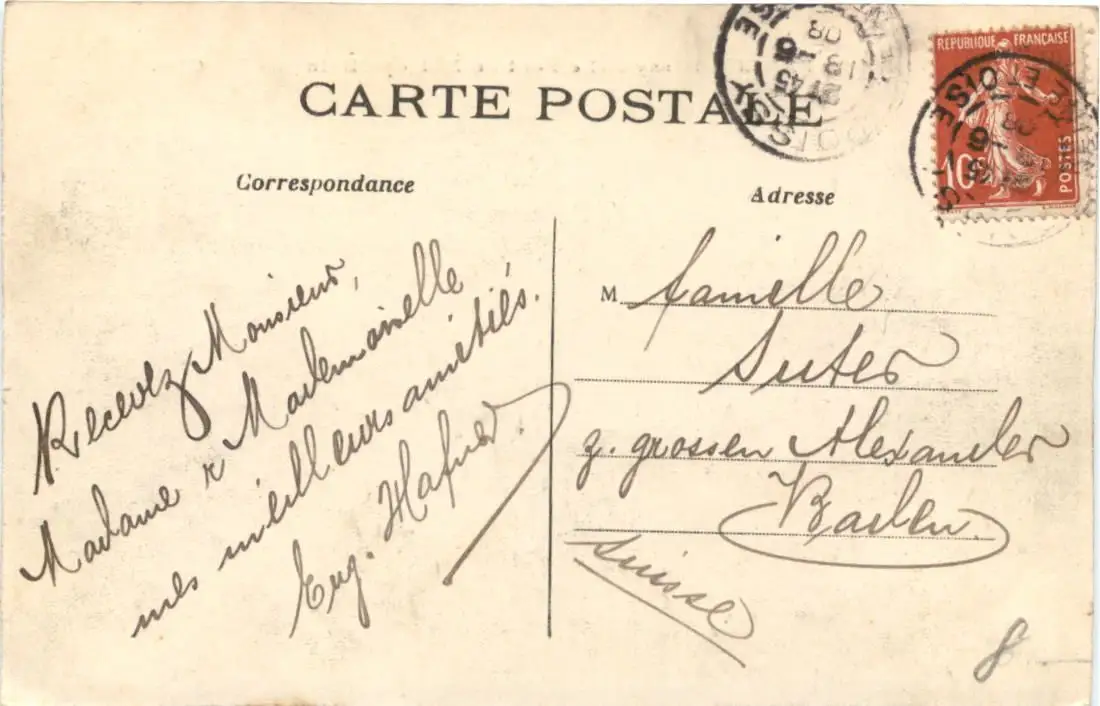 CARTE POSTALE
Correspondance
Adresse
REPUBLIQUE FRANÇAISE
10c
POSTES
ET OISE
Recevez Monsieur,
Madame & Mademoiselle
mes meilleurs amitiés.
Eug. Hafner.
M famille
Suter
z. grossen Alexander
Baden
Suisse
8